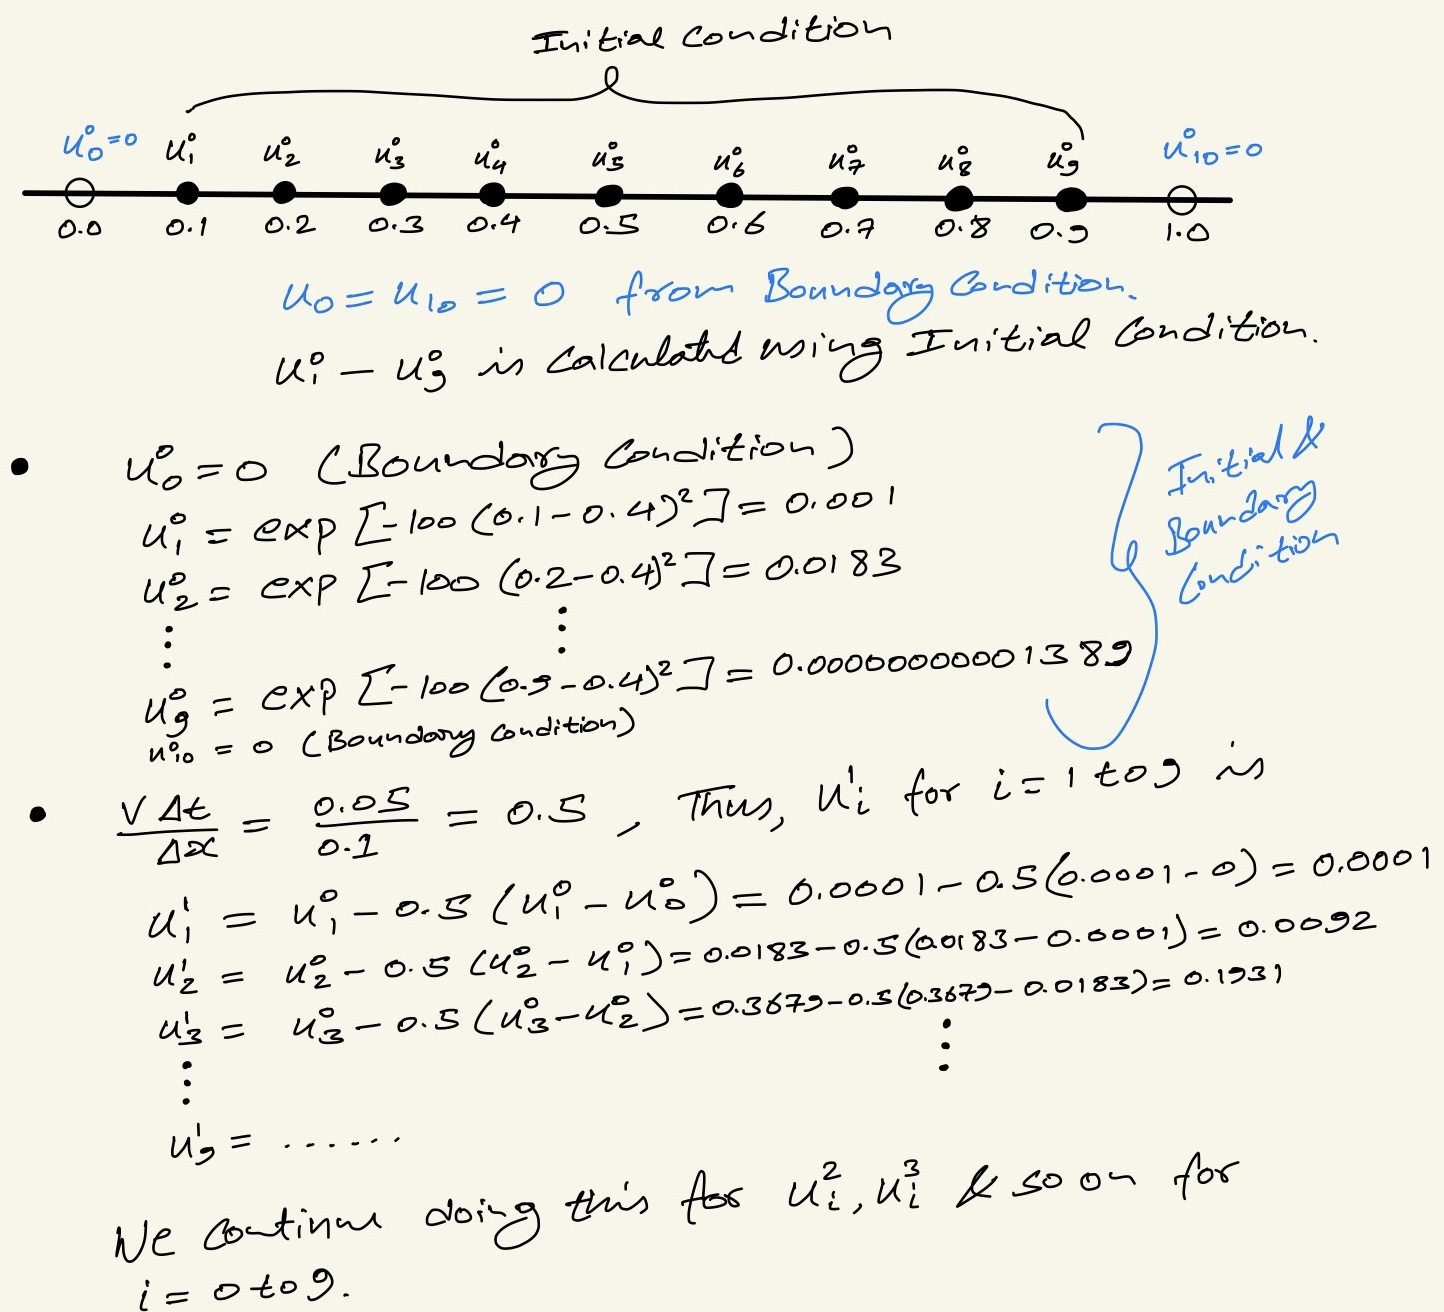 Initial Condition
u₀⁰=0 u₁⁰ u₂⁰ u₃⁰ u₄⁰ u₅⁰ u₆⁰ u₇⁰ u₈⁰ u₉⁰ u₁₀⁰=0
0.0 0.1 0.2 0.3 0.4 0.5 0.6 0.7 0.8 0.9 1.0
u₀ = u₁₀ = 0 from Boundary Condition.
u₁⁰ – u₉⁰ is calculated using Initial Condition.
• u₀⁰ = 0 (Boundary Condition)
u₁⁰ = exp [-100 (0.1-0.4)²] = 0.001
u₂⁰ = exp [-100 (0.2-0.4)²] = 0.0183
⋮ ⋮
u₉⁰ = exp [-100 (0.9-0.4)²] = 0.00000000001389
u₁₀⁰ = 0 (Boundary Condition)
Initial &
Boundary
Condition
• V Δt / Δx = 0.05 / 0.1 = 0.5, Thus, uᵢ¹ for i = 1 to 9 is
u₁¹ = u₁⁰ - 0.5 (u₁⁰ - u₀⁰) = 0.0001 - 0.5(0.0001 - 0) = 0.0001
u₂¹ = u₂⁰ - 0.5 (u₂⁰ - u₁⁰) = 0.0183 - 0.5(0.0183 - 0.0001) = 0.0092
u₃¹ = u₃⁰ - 0.5 (u₃⁰ - u₂⁰) = 0.3679 - 0.5(0.3679 - 0.0183) = 0.1931
⋮ ⋮
u₉¹ = ......
We continue doing this for uᵢ², uᵢ³ & so on for
i = 0 to 9.